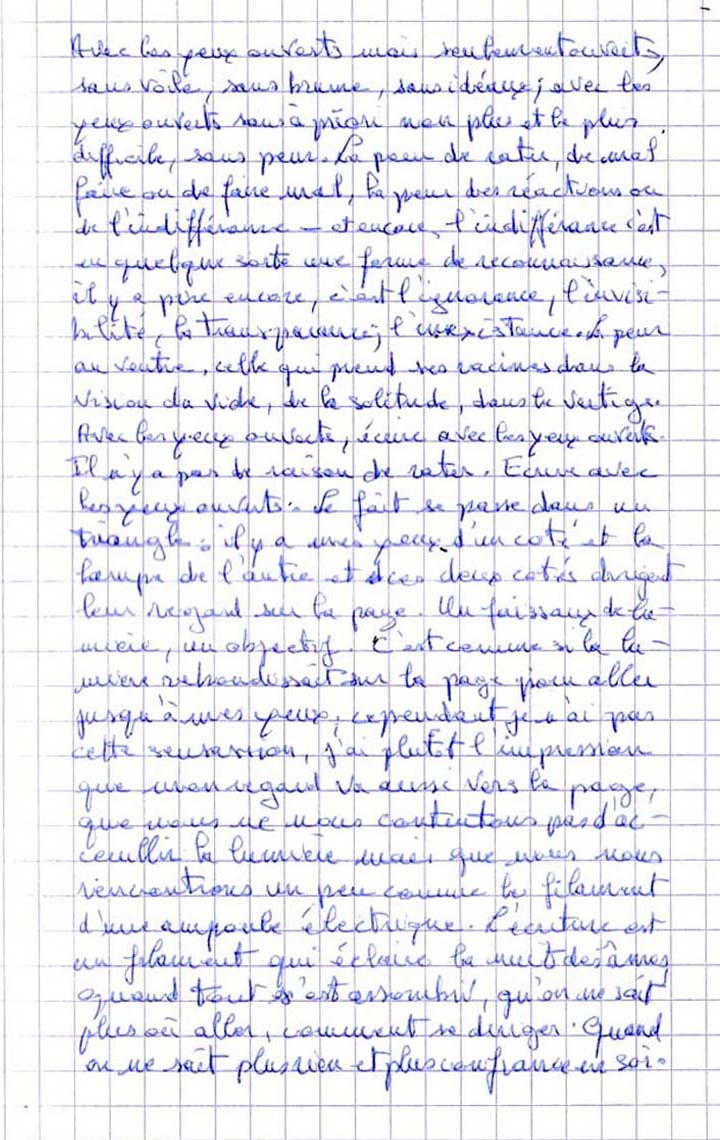 Avec les yeux ouverts mais seulement ouverts,
sans voile, sans brume, sans idéaux ; avec les
yeux ouverts sans à priori non plus et le plus
difficile, sans peur. La peur de rater, de mal
faire ou de faire mal, la peur des réactions ou
de l'indifférance - et encore, l'indifférance c'est
en quelque sorte une forme de reconnaissance,
il y a pire encore, c'est l'ignorance, l'invisi-
bilité, la transparence, l'inexistance. La peur
au ventre, celle qui prend ses racines dans la
vision du vide, de la solitude, dans le vertige.
Avec les yeux ouverts, écrire avec les yeux ouverts.
Il n'y a pas de raison de rater. Ecrire avec
les yeux ouverts. Le fait se passe dans un
triangle : il y a mes yeux d'un coté et la
lampe de l'autre et ces deux cotés dirigent
leur regard sur la page. Un faisseau de lu-
mière, un objectif. C'est comme si la lu-
mière rebondissait sur la page pour aller
jusqu'à mes yeux, cependant je n'ai pas
cette sensassion, j'ai plutôt l'impression
que mon regard va aussi vers la page,
que nous ne nous contentons pas d'ac-
ceuillir la lumière mais que nous nous
rencontrons un peu comme le filament
d'une ampoule électrique. L'écriture est
un filament qui éclaire la nuit des âmes
quand tout s'est assombri, qu'on ne sait
plus où aller, comment se diriger. Quand
on ne sait plus rien et plus confiance en soi.